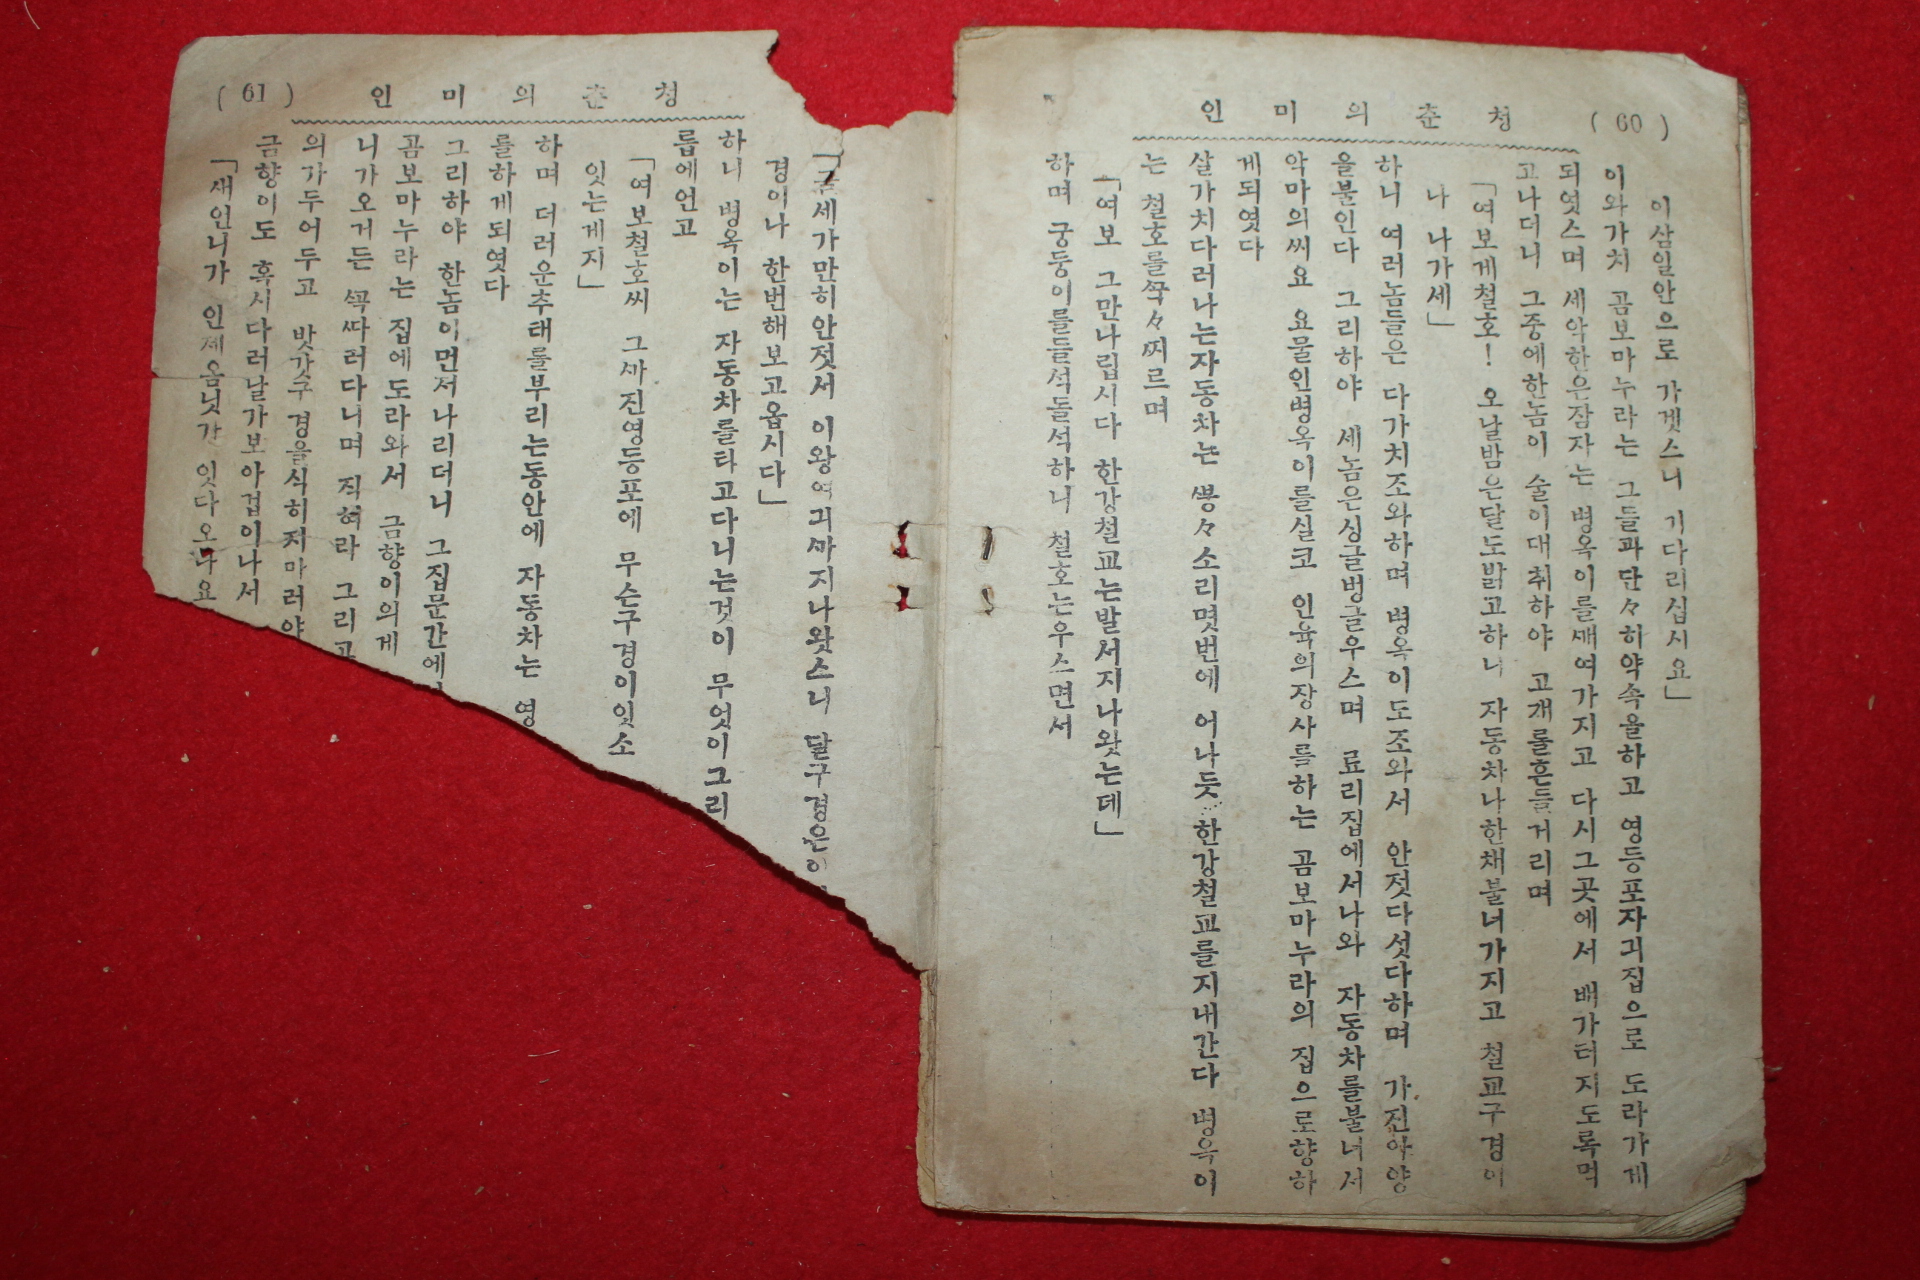 (60)
청춘의미인
이삼일안으로 가겟스니 기다리십시요」
이와가치 곰보마누라는 그들과단々히약속을하고 영등포자긔집으로 도라가게
되엿스며 세악한은잠자는 병옥이를ᄭᅢ여가지고 다시그곳에서 배가터지도록먹
고나더니 그중에한놈이 술이대취하야 고개를흔들거리며
「여보게철호! 오날밤은달도밝고하니 자동차나한채불너가지고 철교구경이
나 나가세」
하니 여러놈들은 다가치조와하며 병옥이도조와서 안젓다섯다하며 가진아양
을불인다 그리하야 세놈은싱글벙글우스며 료리집에서나와 자동차를불너서
악마의씨요 요물인병옥이를실코 인육의장사를하는 곰보마누라의 집으로향하
게되엿다
살가치다러나는자동차는 ᄲᅮᆼ々소리몃번에 어나듯 한강철교를지내간다 병옥이
는 철호를ᄭᅮᆨ々ᄶᅵ르며
「여보 그만나립시다 한강철교는발서지나왓는데」
하며 궁둥이를들석들석하니 철호는우스면서
(61)
청춘의미인
세가만히안젓서 이왕여긔ᄭᅡ지나왓스니 달구경은
경이나 한번해보고옵시다」
하니 병옥이는 자동차를타고다니는것이 무엇이그리
릅에언고
「여보철호씨 그ᄭᅡ진영등포에 무슨구경이잇소
잇는게지」
하며 더러운추태를부리는동안에 자동차는 영
를하게되엿다
그리하야 한놈이먼저나리더니 그집문간에
곰보마누라는 집에도라와서 금향이의게
니가오거든 ᄭᅩᆨᄯᅡ러다니며 직혀라 그리고
의가두어두고 밧갓구경을식히지마러야
금향이도 혹시다러날가보아겁이나서
「새인니가 인제옴닛가 잇다오나요